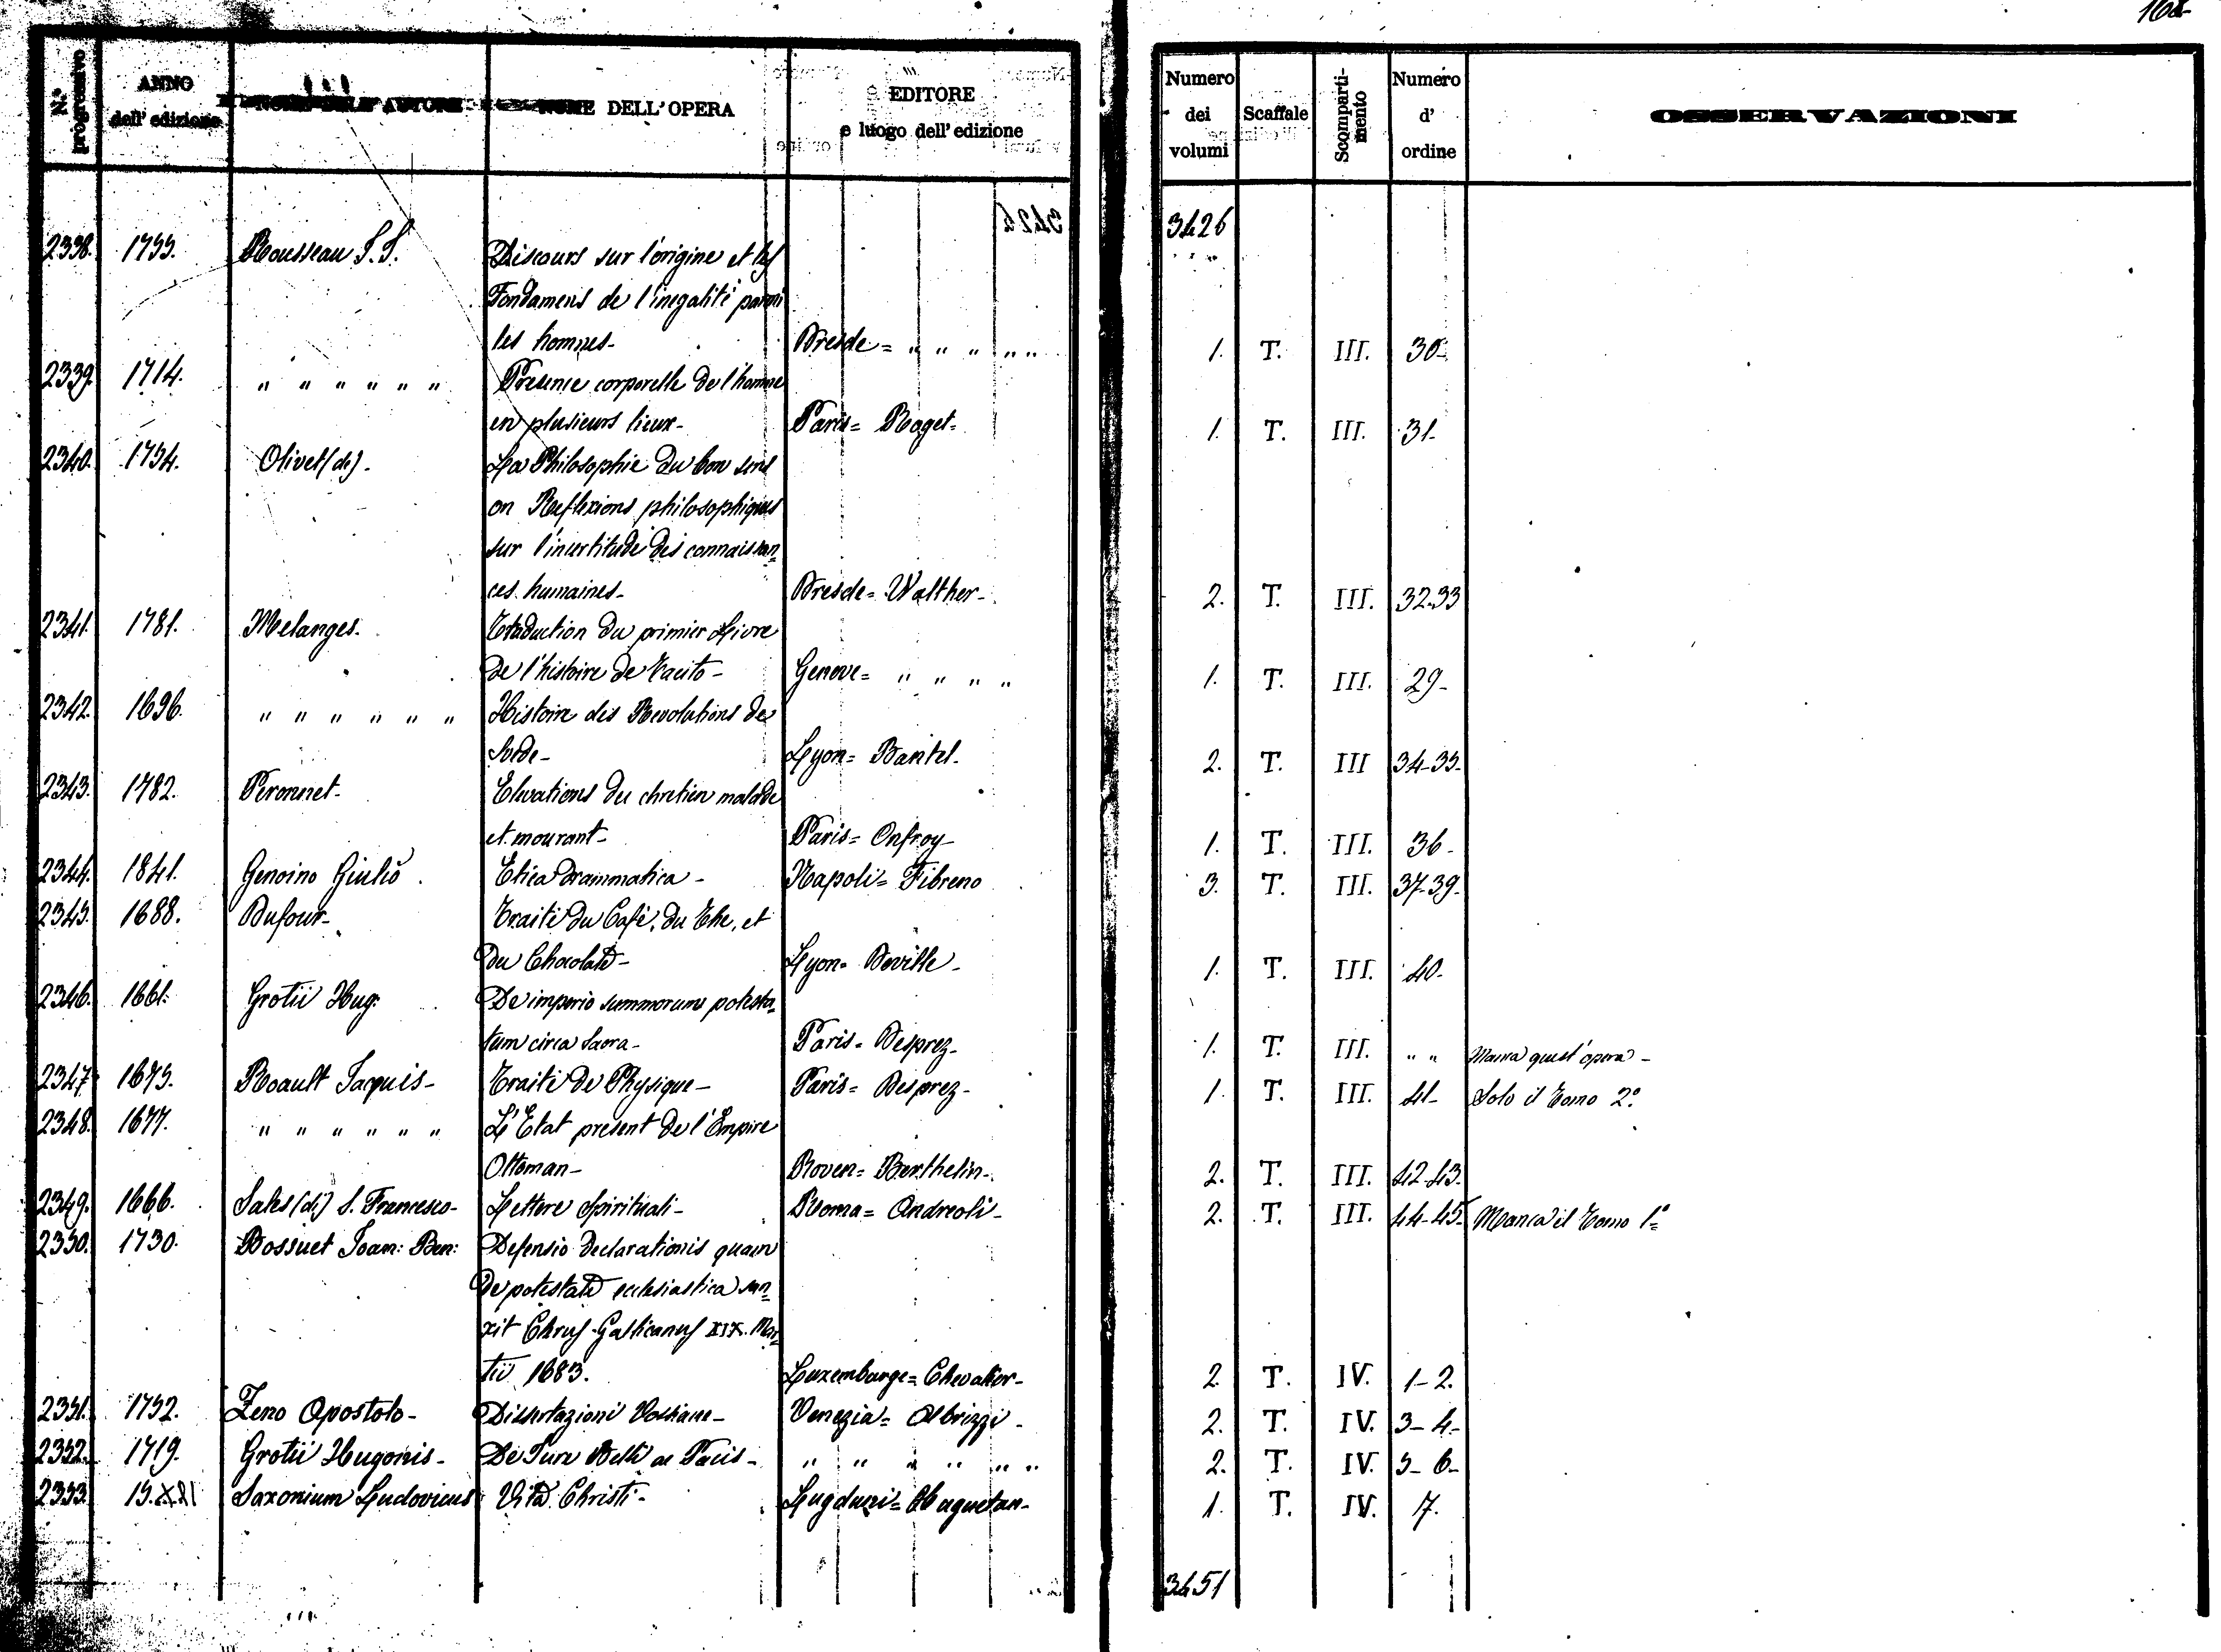 168
N.º progressivo ANNO dell'edizione NOME DELL'AUTORE NOME DELL'OPERA EDITORE e luogo dell'edizione Numero dei volumi Scaffale Scomparti-mento Numero d'ordine OSSERVAZIONI
3426
2338. 1755. Rousseau J. J. Discours sur l'origine et les
Fondamens de l'inegalité parmi
les hommes- Dresde = " " " " " 1. T. III. 30-
2339. 1714. " " " " " " Presence corporelle de l'homme
en plusieurs lieux- Paris = Roget- 1. T. III. 31-
2340. 1754. Olivet (de)- La Philosophie du bon sens
on Reflexions philosophiques
sur l'incertitude des connaissan=
ces humaines- Dresde = Walther- 2. T. III. 32.33
2341. 1781. Melanges. Traduction du primier Livre
de l'histoire de Tacito- Genove = " " " " 1. T. III. 29-
2342. 1696. " " " " " " Histoire des Revolutions de
Svede- Lyon = Bantel- 2. T. III 34-35-
2343. 1782. Peronnet- Elevations du chretien malade
et mourant- Paris = Onfroy- 1. T. III. 36-
2344. 1841. Genoino Giulio Etica Drammatica- Napoli = Fibreno 3. T. III. 37-39-
2345. 1688. Dufour- Traité du Café, du The, et
du Chocolate- Lyon = Deville- 1. T. III. 40-
2346. 1661. Grotii Hug: De imperio summorum potesta=
tum circa Sacra- Paris = Desprez- 1. T. III. " " Manca quest'opera-
2347. 1675. Roault Jacquis- Traité de Physique- Paris = Desprez- 1. T. III. 41- Solo il Tomo 2.º
2348. 1677. " " " " " " L'Etat present de l'Empire
Ottoman- Roven = Berthelin- 2. T. III. 42-43.
2349. 1666. Sales (di) S. Francesco- Lettere Spirituali- Roma = Andreoli- 2. T. III. 44-45- Manca il Tomo 1º
2350. 1730. Bossuet Joan: Ben: Defensio declarationis quam
de potestate ecclesiastica san=
xit Clerus Gallicanus XIX. Mar=
tii 1683. Luxemburge = Chevalier- 2. T. IV. 1-2.
2351. 1752. Zeno Apostolo- Dissertazioni Vossiane- Venezia = Albrizzi- 2. T. IV. 3-4-
2352. 1719. Grotii Hugonis- De Jure Belli ac Pacis- " " " " " " 2. T. IV. 5-6-
2353. Saxonium Ludovicus Vita Christi- Lugduni = Huguetan- 1. T. IV. 7.
3451